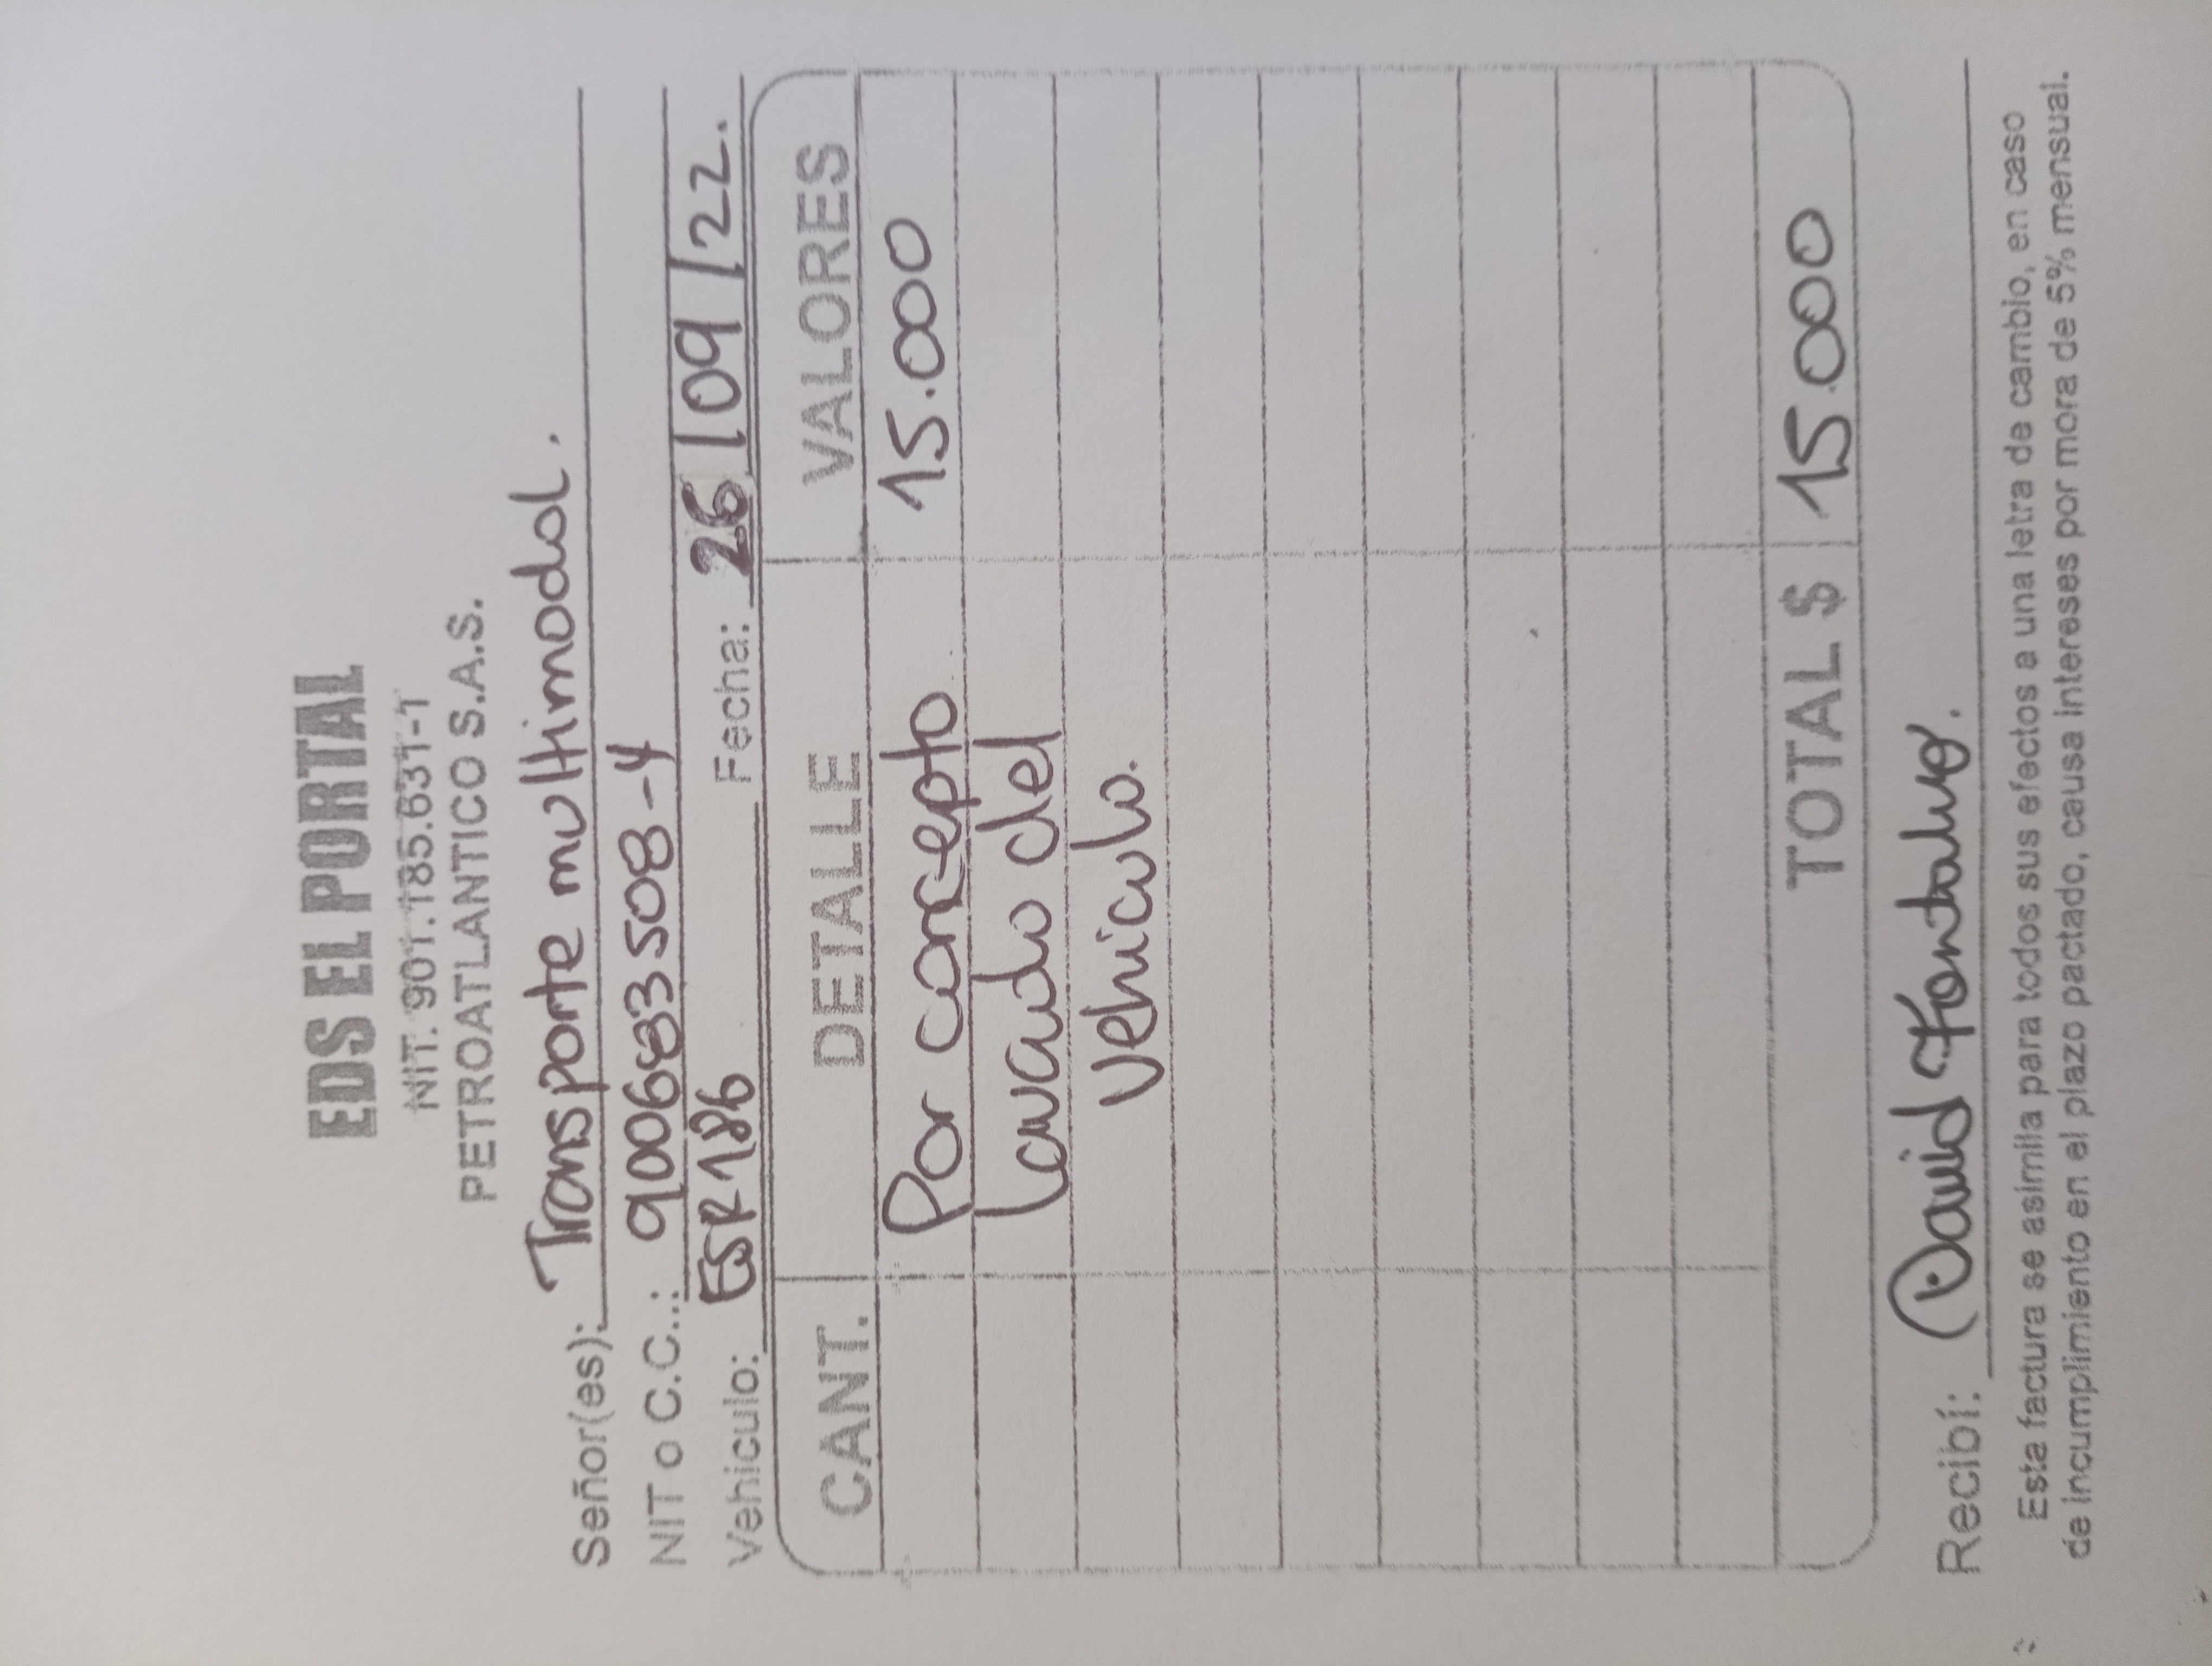 EDS EL PORTAL
NIT. 901.185.631-1
PETROATLANTICO S.A.S.
Señor(es): Transporte multimodal.
NIT o C.C.: 900683508-4
Vehículo: ESR186 Fecha: 26/09/22.
CANT. DETALLE VALORES
Por concepto 15.000
Lavado del
vehiculo.
TOTAL $ 15.000
Recibí: David Fontalvo.
Esta factura se asimila para todos sus efectos a una letra de cambio, en caso
de incumplimiento en el plazo pactado, causa intereses por mora de 5% mensual.